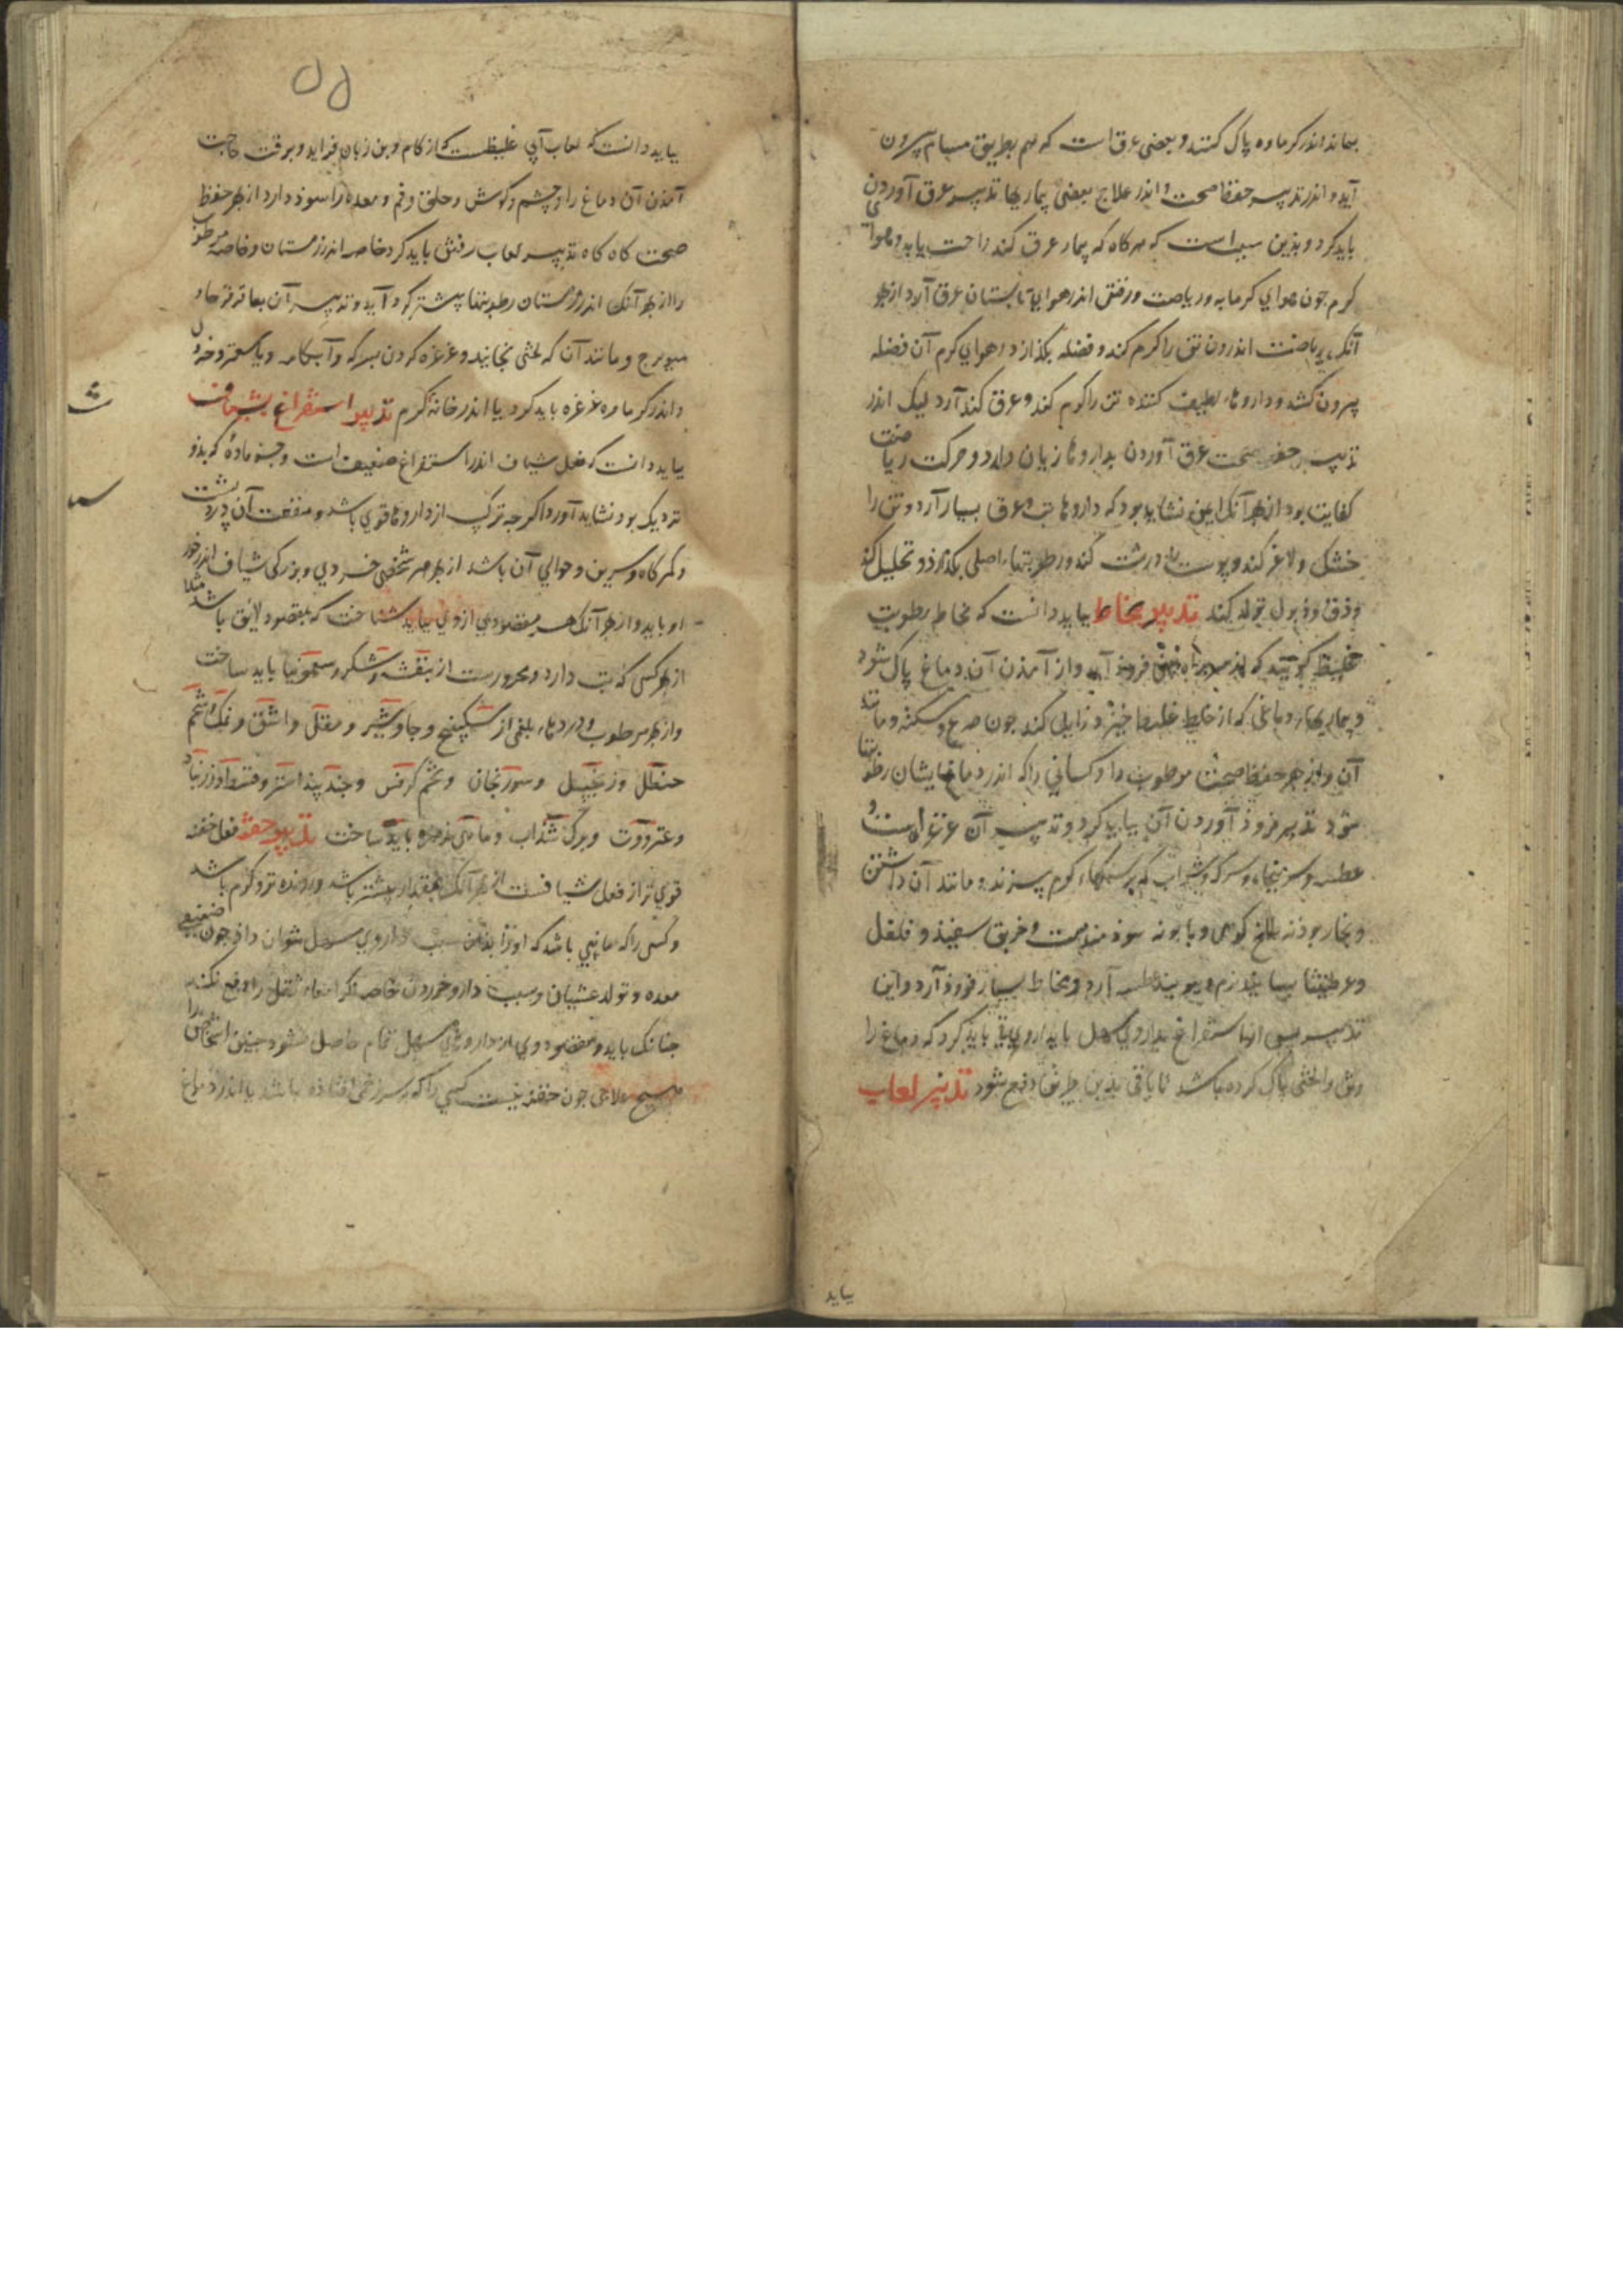 بماند اندر کرماوه پاک کنند و بعضی عرق است که هم بطریق مسام بیرون
آید و اندر تدبیر حفظ صحت و اندر علاج بعضی بیماریها تدبیر عرق آوردن
باید کرد و بذین سبب است که هرکاه که بیمار عرق کند راحت یابد و هواء
کرم جون هوای کرمابه و ریاضت و رفتن اندر هوای تابستان عرق آرد از بهر
آنک ریاضت اندرون تن را کرم کند و فضله بکذازد و هوای کرم آن فضله
بیرون کشد و داروهاء لطیف کننده تن را کرم کند و عرق کند آرد لیک اندر
تدبیر حفظ صحت عرق آوردن بداروها زیان دارد و حرکت ریاضت
کفایت بود از بهر آنک ایمن نشاید بود که داروها تب و عرق بسیار آرد و تن را
خشک و لاغر کند و پوست را درشت کند و رطوبتهاء اصلی بکذازد و تحلیل کند
و دق و ذبول تولد کند تدبیر مخاط بباید دانست که مخاط رطوبت
غلیظ کویند که از سر براه بینی فروذ آید و از آمذن آن دماغ پاک شود
و بیماریهاء دماغی که از خلط غلیظ خیزد زایل کند جون صرع و سکته و مانند
آن و از بهر حفظ صحت مرطوب را و کسانی را که اندر دماغ ایشان رطوبتها
شود تدبیر فروذ آوردن آن بباید کرد و تدبیر آن غرغره است و
عطسه و سر بنجاء و سرکه و شراب که بر سنکهاء کرم بریزند و مانند آن داشتن
و بخار بودنه بالخ کوهی و بابونه سوذمند است و خربق سفیذ و فلفل
و عرطنیثا بسایند نرم و ببویند عطسه آرد و مخاط بسیار فروذ آرد و این
تدبیر بس از استفراغ بداروی مسهل یا بداروی قی باید کرد که دماغ را
و تن را لختی پاک کرده باشد تا باقی بذین طریق دفع شود تدبیر لعاب
بباید
۵۵
بباید دانست که لعاب آبی غلیظ است که از کام و بن زبان فزاید و برفت حاجت
آمذن آن دماغ را و چشم و کوش و حلق و فم و معده را سوذ دارد از بهر حفظ
صحت کاه کاه تدبیر لعاب رفتن باید کرد خاصه اندر زمستان و خاصه مرطوب
را از بهر آنک اندر زمستان رطوبتها بیشتر کرد آید و تدبیر آن بعاقرقرحا و
میویزج و مانند آن که لختی بخایند و غرغره کردن بسرکه و آبکامه و یا سعتر و خردل
و اندر کرماوه غرغره باید کرد یا اندر خانه کرم تدبیر استفراغ بشیاف
بباید دانست که فعل شیاف اندر استفراغ ضعیف است و جز ماده که بدو
نزدیک بود نشاید آورد اکر جه ترکیب از داروها قوی باشد و منفعت آن در درد پشت
و کمرکاه و سرین و حوالی آن باشد از بهر هر شخصی خردی و بزرکی شیاف اندر خور
او باید و از بهر آنک هر مقصودی از وی بباید شناخت که بمقصود لایق باشد مثلا
از بهر کسی که تب دارد و محرور است از بنفشه و شکر و سقمونیا باید ساخت
و از بهر مرطوب و دردهاء بلغمی از سکبینج و جاوشیر و مقل و اشق و نمک و شحم
حنظل و زنجبیل و سورنجان و تخم کرفس و جندبیدستر و قسط و زرنباد
و عنزروت و برک سذاب و ماهی زهره باید ساخت تدبیر حقنه فعل حقنه
قوی تر از فعل شیاف است از بهر آنک بمقدار بیشتر باشد و رونده تر و کرم باشد
و کسی را که مانعی باشد که او را بذان سبب داروی مسهل نتوان داذ جون ضعیفی
معده و تولد غشیان و سبب دارو خوردن خاصه اکر امعاء ثقل را دفع نکند
جنانک باید و مقصود وی از داروی مسهل تمام حاصل نشود جنین اشخاص را
هیج علاجی جون حقنه نیست کسی را که بر سر زخمی افتاده باشد یا اندر دماغ